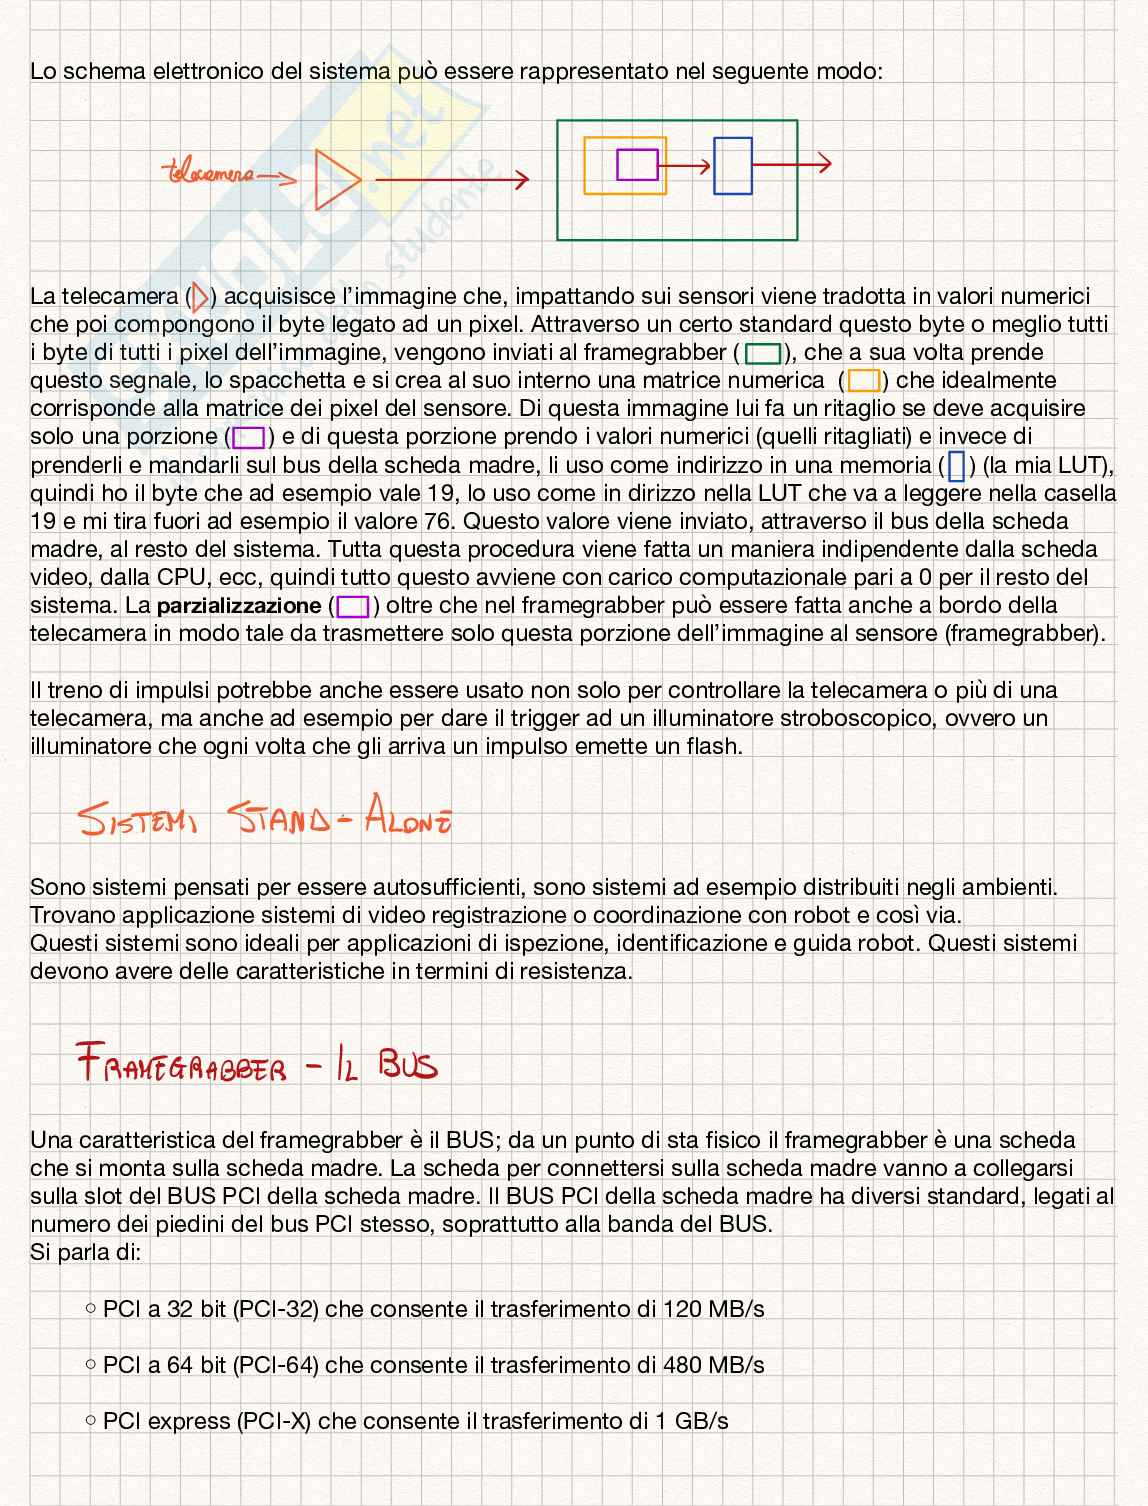 Lo schema elettronico del sistema può essere rappresentato nel seguente modo:
telecamera
La telecamera ( ) acquisisce l'immagine che, impattando sui sensori viene tradotta in valori numerici
che poi compongono il byte legato ad un pixel. Attraverso un certo standard questo byte o meglio tutti
i byte di tutti i pixel dell'immagine, vengono inviati al framegrabber ( ), che a sua volta prende
questo segnale, lo spacchetta e si crea al suo interno una matrice numerica ( ) che idealmente
corrisponde alla matrice dei pixel del sensore. Di questa immagine lui fa un ritaglio se deve acquisire
solo una porzione ( ) e di questa porzione prendo i valori numerici (quelli ritagliati) e invece di
prenderli e mandarli sul bus della scheda madre, li uso come indirizzo in una memoria ( ) (la mia LUT),
quindi ho il byte che ad esempio vale 19, lo uso come in dirizzo nella LUT che va a leggere nella casella
19 e mi tira fuori ad esempio il valore 76. Questo valore viene inviato, attraverso il bus della scheda
madre, al resto del sistema. Tutta questa procedura viene fatta un maniera indipendente dalla scheda
video, dalla CPU, ecc, quindi tutto questo avviene con carico computazionale pari a 0 per il resto del
sistema. La parzializzazione ( ) oltre che nel framegrabber può essere fatta anche a bordo della
telecamera in modo tale da trasmettere solo questa porzione dell'immagine al sensore (framegrabber).
Il treno di impulsi potrebbe anche essere usato non solo per controllare la telecamera o più di una
telecamera, ma anche ad esempio per dare il trigger ad un illuminatore stroboscopico, ovvero un
illuminatore che ogni volta che gli arriva un impulso emette un flash.
SISTEMI STAND-ALONE
Sono sistemi pensati per essere autosufficienti, sono sistemi ad esempio distribuiti negli ambienti.
Trovano applicazione sistemi di video registrazione o coordinazione con robot e così via.
Questi sistemi sono ideali per applicazioni di ispezione, identificazione e guida robot. Questi sistemi
devono avere delle caratteristiche in termini di resistenza.
FRAMEGRABBER - IL BUS
Una caratteristica del framegrabber è il BUS; da un punto di sta fisico il framegrabber è una scheda
che si monta sulla scheda madre. La scheda per connettersi sulla scheda madre vanno a collegarsi
sulla slot del BUS PCI della scheda madre. Il BUS PCI della scheda madre ha diversi standard, legati al
numero dei piedini del bus PCI stesso, soprattutto alla banda del BUS.
Si parla di:
○ PCI a 32 bit (PCI-32) che consente il trasferimento di 120 MB/s
○ PCI a 64 bit (PCI-64) che consente il trasferimento di 480 MB/s
○ PCI express (PCI-X) che consente il trasferimento di 1 GB/s